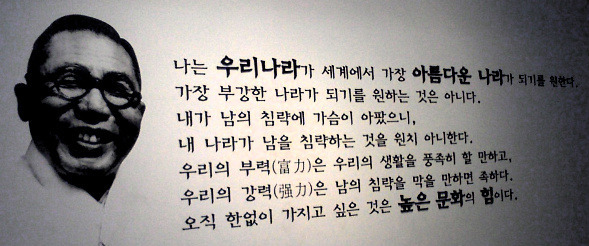 나는 우리나라가 세계에서 가장 아름다운 나라가 되기를 원한다.
가장 부강한 나라가 되기를 원하는 것은 아니다.
내가 남의 침략에 가슴이 아팠으니,
내 나라가 남을 침략하는 것을 원치 아니한다.
우리의 부력(富力)은 우리의 생활을 풍족히 할 만하고,
우리의 강력(强力)은 남의 침략을 막을 만하면 족하다.
오직 한없이 가지고 싶은 것은 높은 문화의 힘이다.